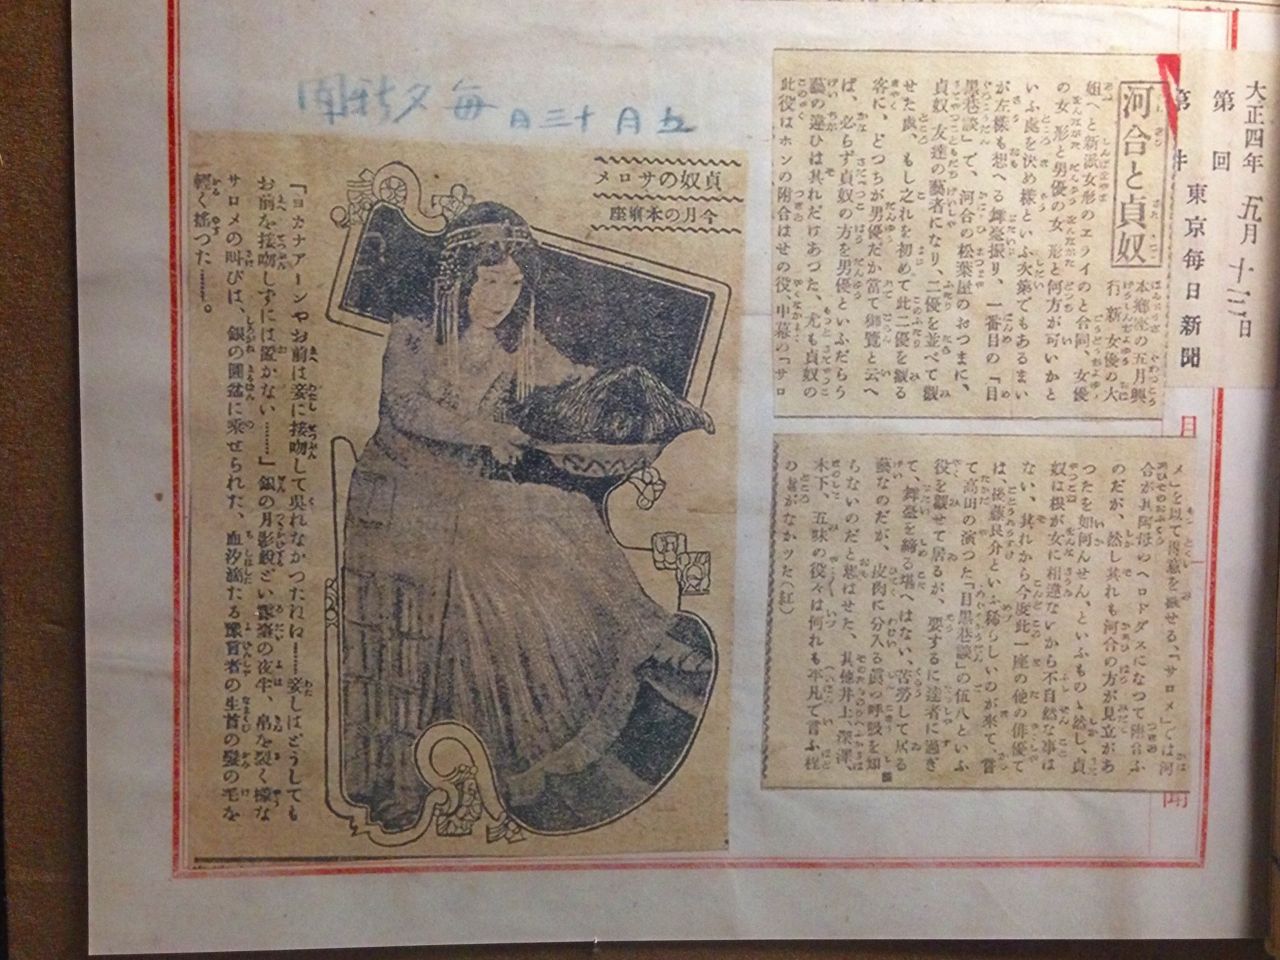 大正四年 五月 十三日
第 回
第 件 東京毎日新聞
河合と貞奴
本郷座の五月興
行、新女優の大
姐へと新派女形のエライのと合同、女優
の女形と男優の女形と何方が可いかと
いふ處を決め樣といふ次第でもあるまい
が左樣も想へる舞臺振り、一番目の「目
黒巷談」で、河合の松葉屋のおつまに、
貞奴、友達の藝者になり、二優を並べて觀
せた處、もし之れを初めて此二優を觀る
客に、どつちが男優だか當て御覽と云へ
ば、必らず貞奴の方を男優といふだらう
藝の違ひは其れだけあつた、尤も貞奴の
此役はホンの附合はせの役、中幕の「サロ
メ」を以て
合が其阿母のヘロドダスになつて附合ふ
のだが、然し其れも河合の方が見立があ
つたを如何んせん、といふものゝ然し、貞
奴は根が女に相違ないから不自然な事は
ない、其れから今度此一座の他の俳優で
は、後藤良介といふ稀らしいのが來て、嘗
て高田の演つた「目黒巷談」の伍八といふ
役を觀せて居るが、要するに達者に過ぎ
て、舞臺を締る場へはない、苦勞して居る
藝なのだが、皮肉に分入る眞の呼吸を知
らないのだと思はせた、其他井上、深澤、
木下、五味の役々は何れも平凡で言ふ程
の事がなかツた(紅)
五月十三日 毎夕新聞
貞奴のサロメ
今月の本郷座
「ヨカナアーンやお前は妾に接吻して呉れなかつたねね……妾しはどうしても
お前を接吻しずには置かない……」銀の月影鋭どい露臺の夜半、帛を裂く樣な
サロメの叫びは、銀の圓盆に乘せられた、血汐滴たる豫言者の生首の髮の毛を
輕く搖つた……。